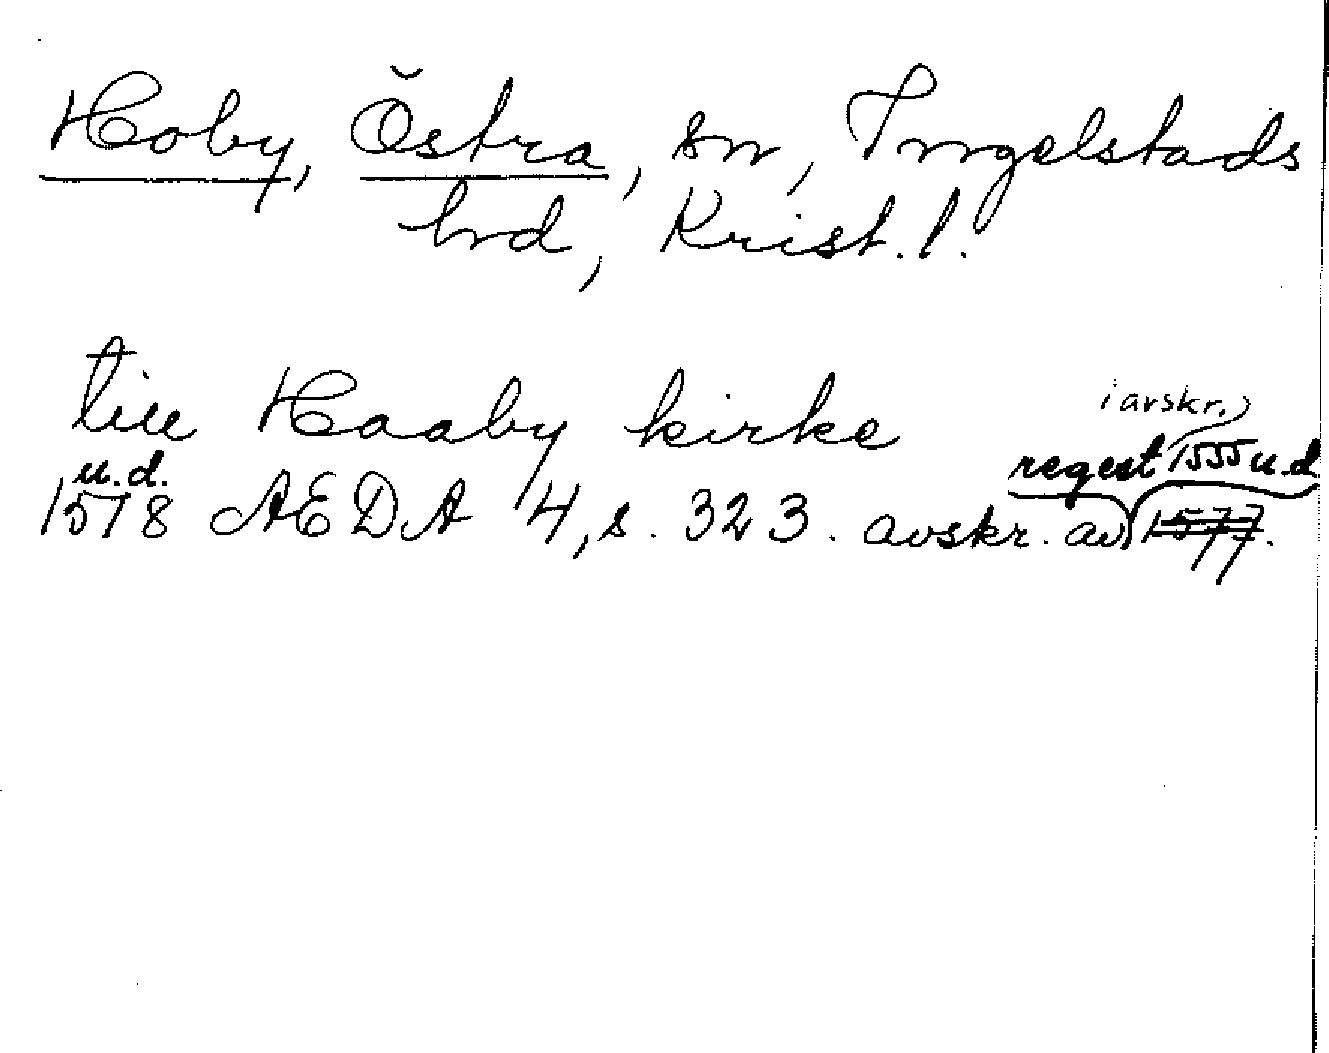 Hoby, Östra, sn, Ingelstads
hrd, Krist. l.
till Haaby kirke
i avskr.
u.d.
regest 1555 u.d.
1578 AEDA 4, s. 323. avskr. av 1577.